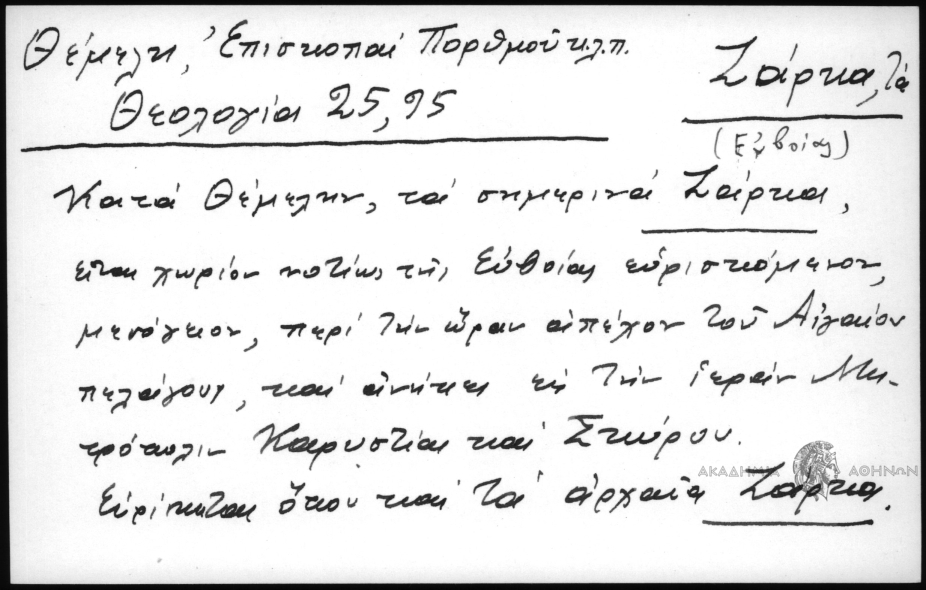 Θέμελη, Ἐπισκοπαί Πορθμοῦ κ.λ.π.
Ζάρκα, τά
Θεολογία 25, 95
(Εὐβοίας)
Κατά Θέμελην, τά σημερινά Ζάρκα,
εἶναι χωρίον νοτίως τῆς Εὐβοίας εὑρισκόμενον,
μεσόγειον, περί τήν ὥραν ἀπέχον τοῦ Αἰγαίου
πελάγους, καί ἀνήκει εἰς τήν ἱεράν Μη-
τρόπολιν Καρυστίας καί Σκύρου.
ΑΚΑΔΗΜΙΑ ΑΘΗΝΩΝ
Εὑρίσκεται ὅπου καί τά ἀρχαῖα Ζάρκα.